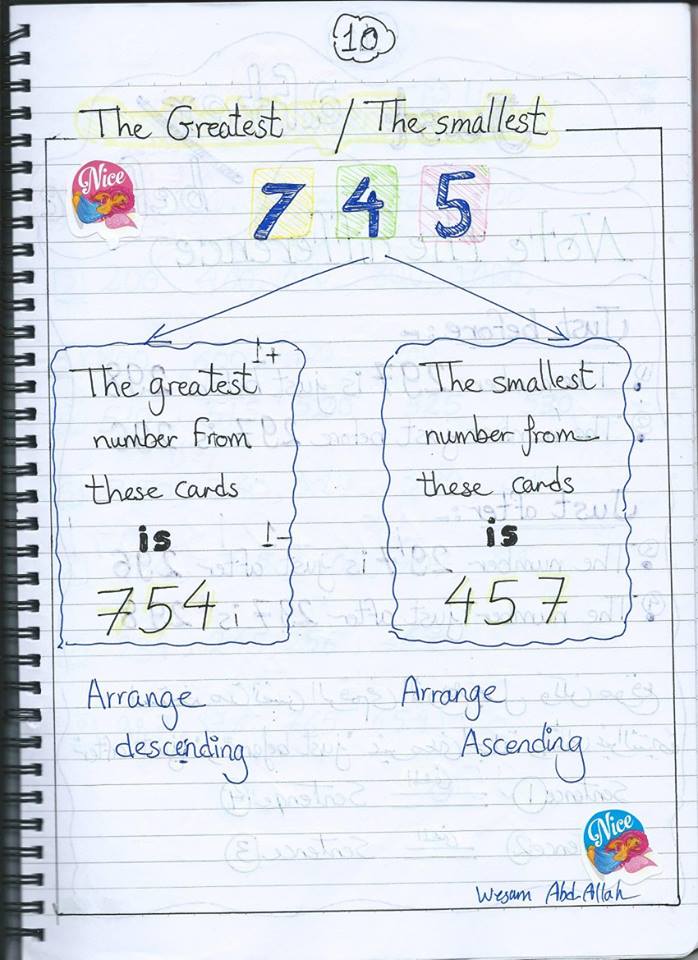 10
The Greatest / The smallest
Nice
7 4 5
The greatest
number From
these cards
is
754
The smallest
number from
these cards
is
457
Arrange
descending
Arrange
Ascending
Nice
Wesam Abd-Allah